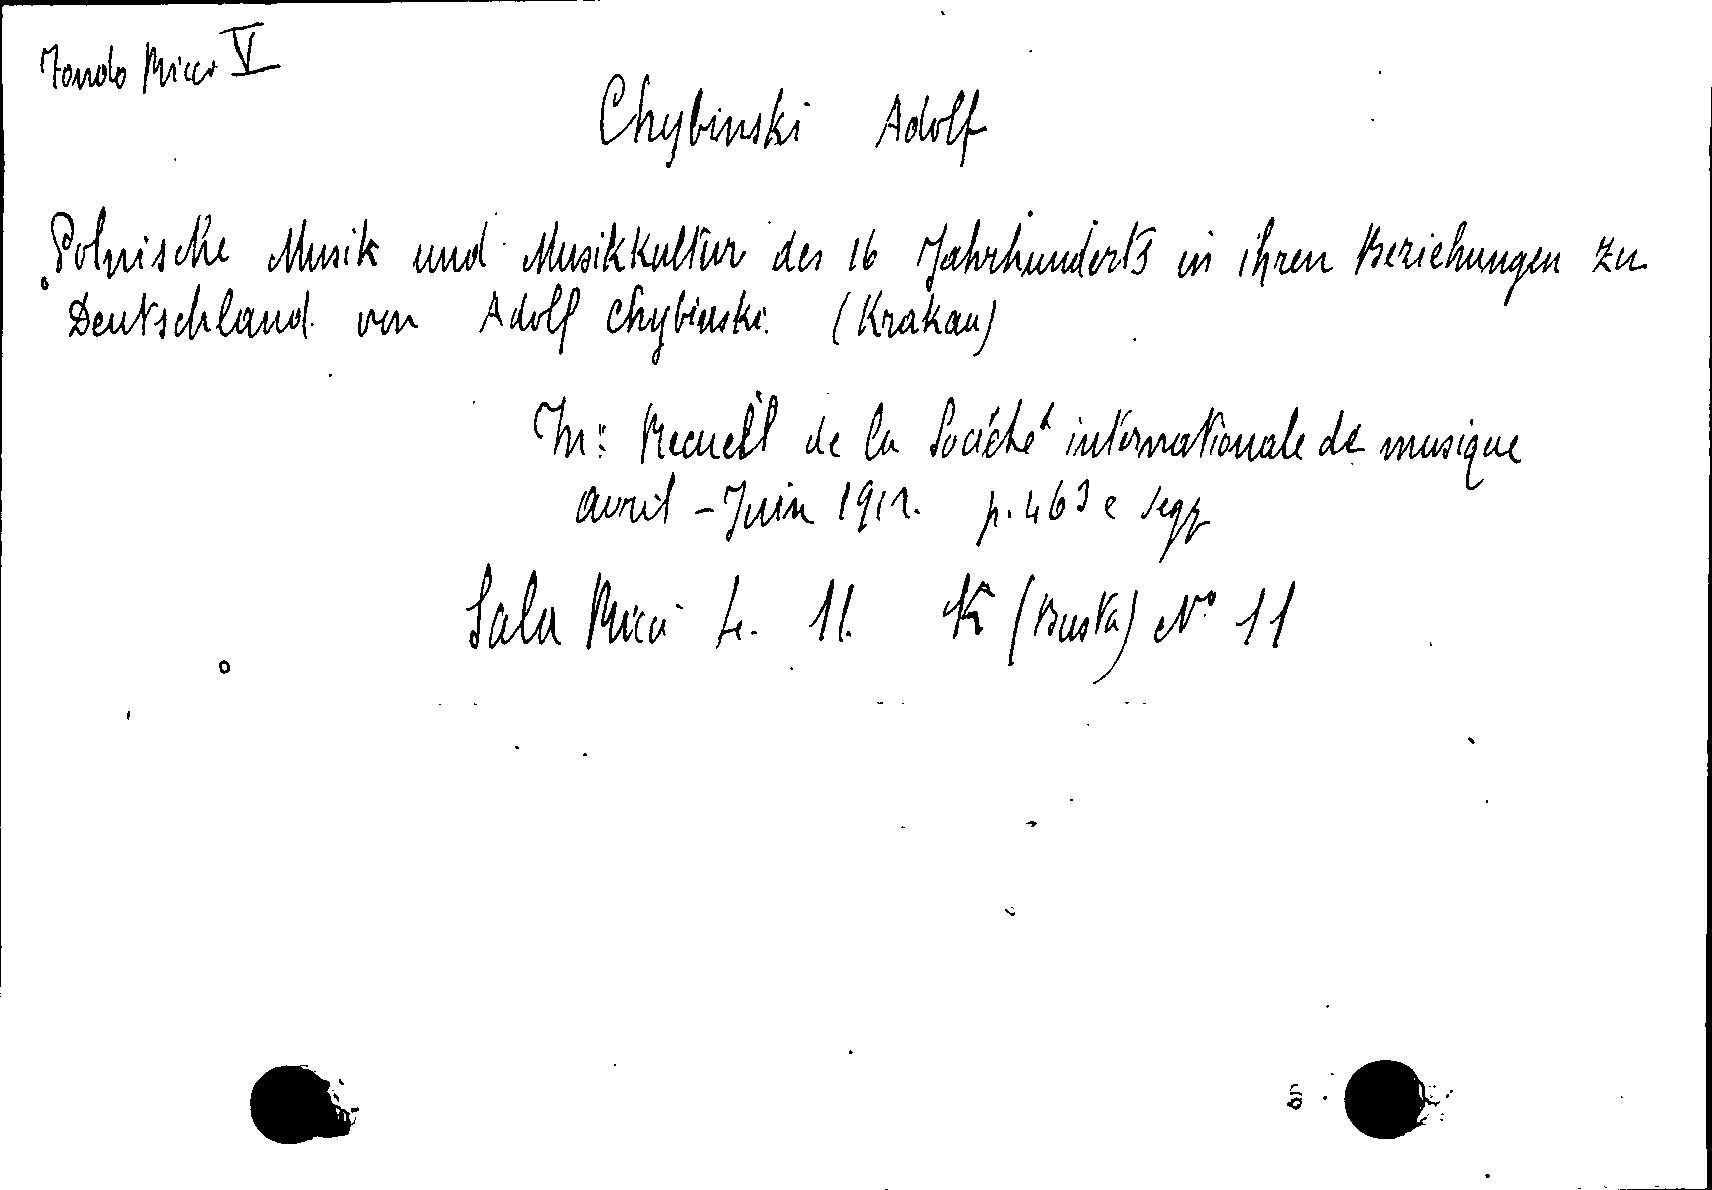 Fondo Ricci V
Chybinski Adolf
Polnische Musik und Musikkultur des 16 Jahrhunderts in ihren Beziehungen zu
Deutschland von Adolf Chybinski. (Krakau)
In: Recueil de la Société internationale de musique
avril - Juin 1912. p. 463 e segg
Sala Ricci 4. 11. K (Busta) No 11